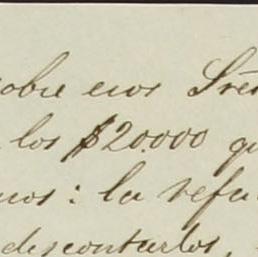 sobre esos Sres
los $20.000 qu
nos: la refu
descontarlos,